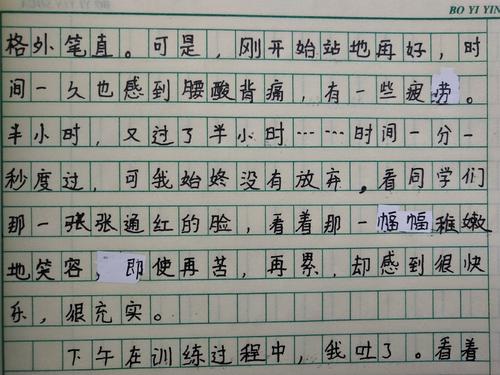 BO YI YIN
格外笔直。可是，刚开始站地再好，时
间一久也感到腰酸背痛，有一些疲劳。
半小时，又过了半小时……时间一分一
秒度过，可我始终没有放弃，看同学们
那一张张通红的脸，看着那一幅幅稚嫩
地笑容，即使再苦，再累，却感到很快
乐，很充实。
下午在训练过程中，我吐了。看着